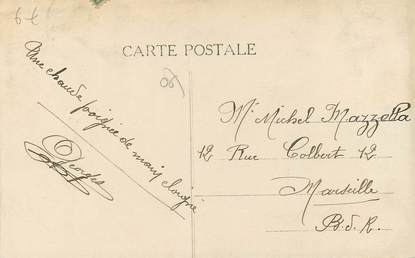 6€
CARTE POSTALE
06
Une chaude poignée de main éloignée
Georges
Mr Michel Mazzella
12 Rue Colbert 12
Marseille
B.d.R.